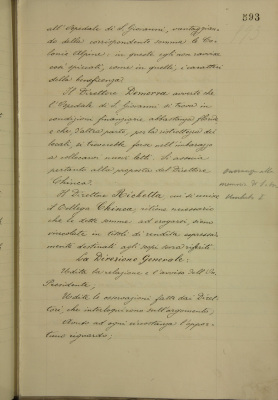 593
all'Ospedale di S. Giovanni, avvantaggian-
do della corrispondente somma le Co-
lonie Alpine: in queste egli non ravvisa
così spiccati, come in quello, i caratteri
della beneficenza.
Il Direttore Lomorra avverte che
l'Ospedale di S. Giovanni si trova in
condizioni finanziarie abbastanza floride
e che, d'altra parte, per la ristrettezza dei
locali, si troverebbe forse nell'imbarazzo
a collocarvi nuovi letti. Si associa
pertanto alla proposta del Direttore
Chinea.
Il Direttore Richetta, con di avviso
il Collega Chinea, ritiene necessario
che le dette somme ad erogarsi, siano
vincolate in titoli di rendita espressa-
mente destinati agli scopi sovra riferiti.
La Direzione Generale:
Udita la relazione e l'avviso dell'On.
Presidente;
Udite le osservazioni fatte dai Diret-
tori, che interloquirono sull'argomento;
Avuto ad ogni circostanza l'oppor-
tuno riguardo;